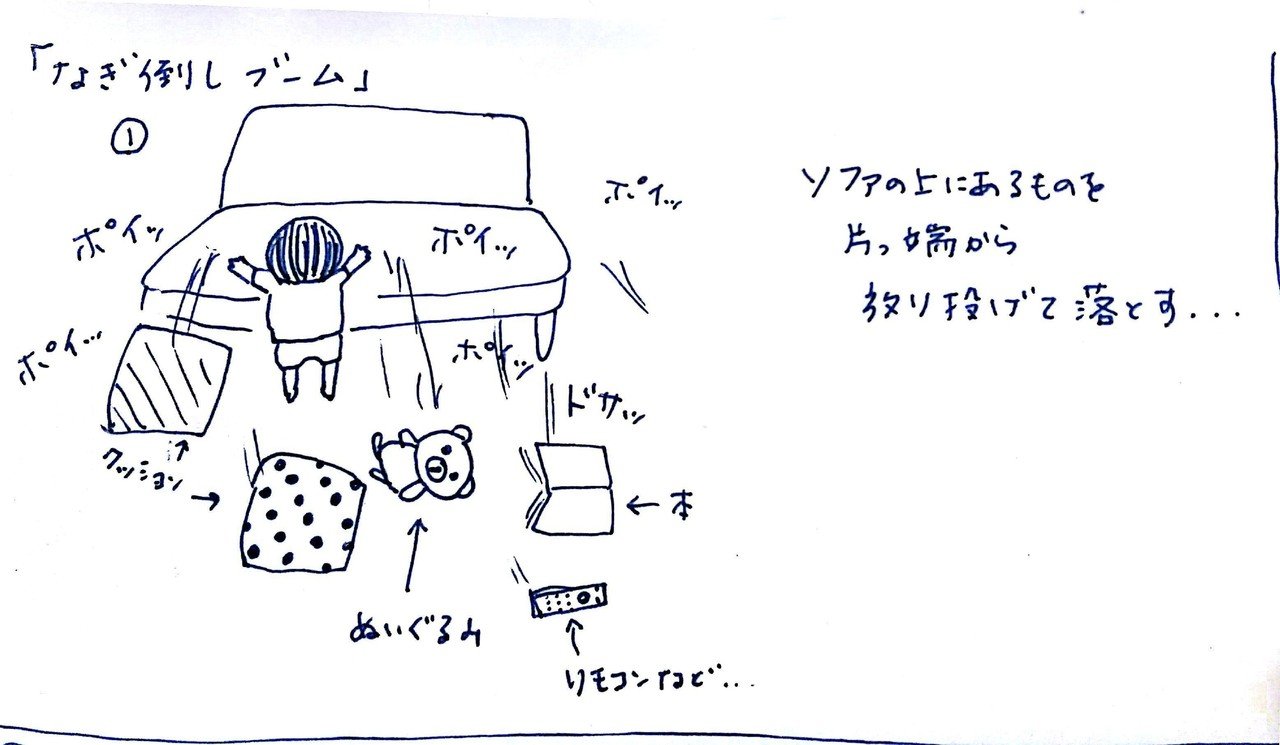 「なぎ倒しブーム」
①
ソファの上にあるものを
片っ端から
放り投げて落とす...
ポイッ
ポイッ
ポイッ
ポイッ
ポイッ
ドサッ
クッション
本
ぬいぐるみ
リモコンなど...